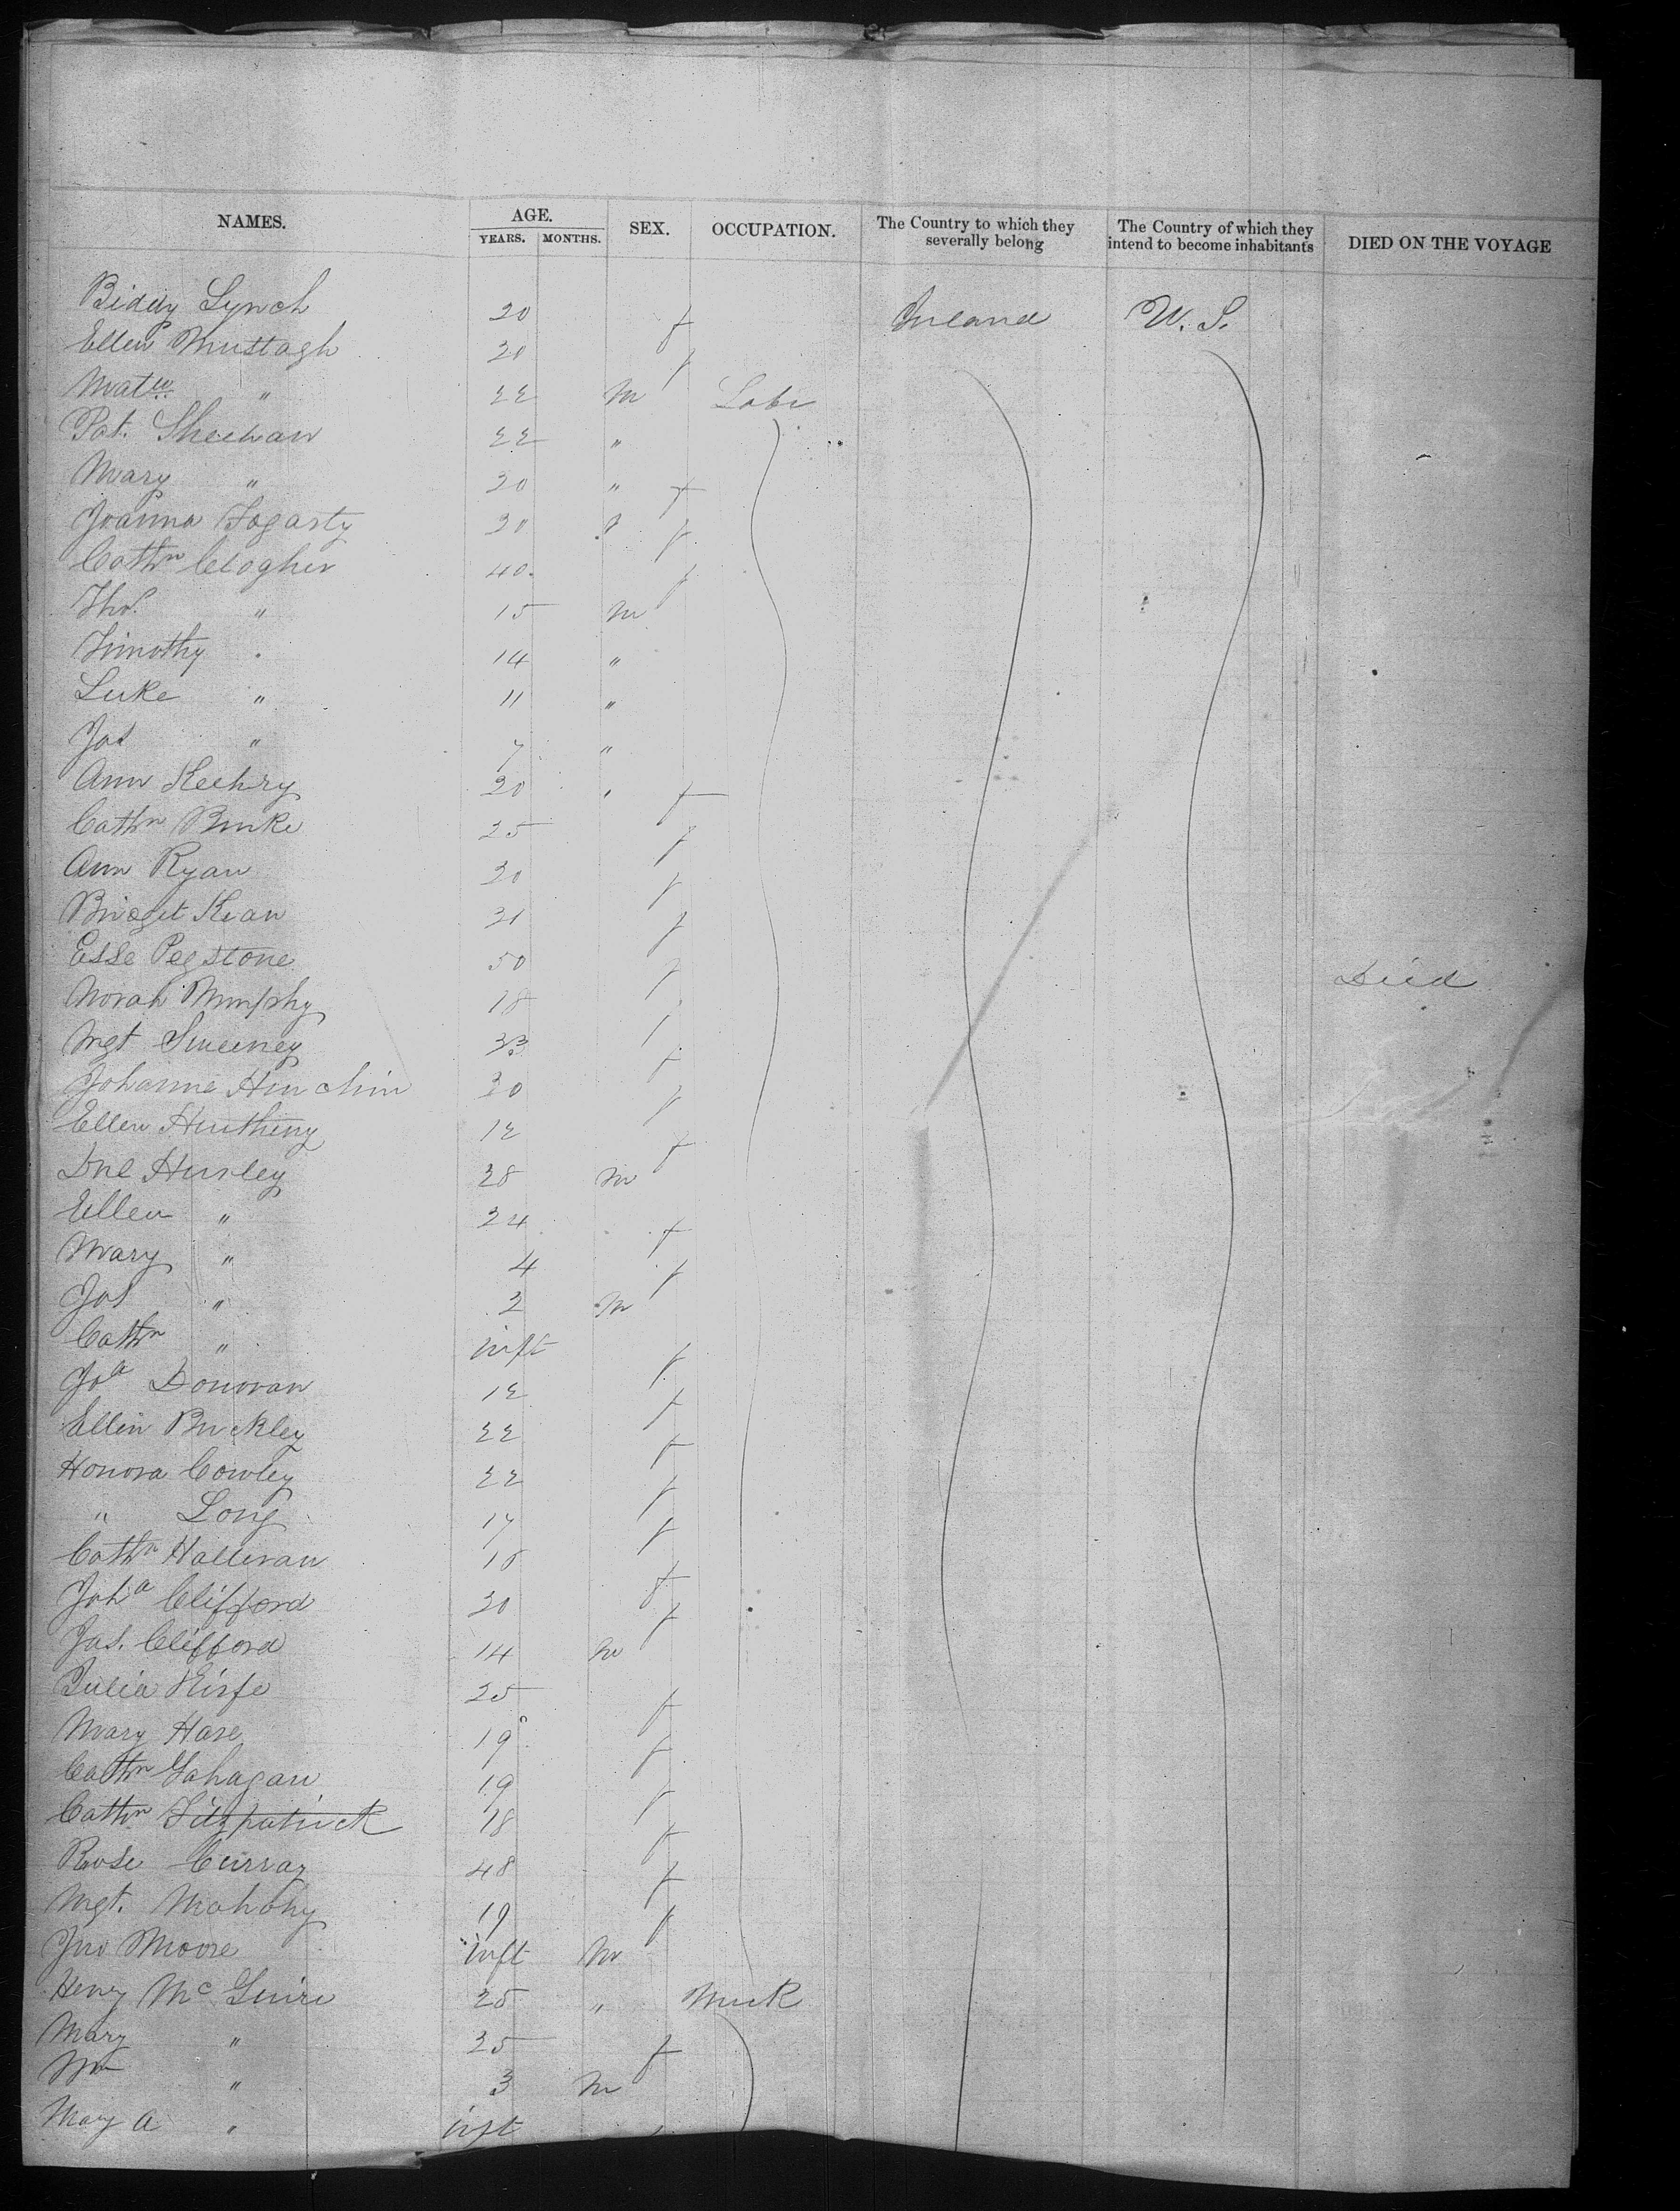 NAMES. AGE. SEX. OCCUPATION. The Country to which they severally belong The Country of which they intend to become inhabitants DIED ON THE VOYAGE
YEARS. MONTHS.
Biddy Lynch 20 f Ireland U.S.
Ellen Murtagh 20 f
Matw " 22 m Labr
Pat. Sheehan 22 "
Mary " 20 " f
Joanna Fogarty 20 f
Cathn Clogher 40 f
Thos. " 15 m
Timothy " 14 "
Luke " 11 "
Jas " 7 "
Ann 20 " f
Cathn Burke 25 f
Ann Ryan 20 f
Bridget Kean 21 f
Esse Pegstone 50 f Died
Norah Murphy 18 f
Mgt Sweeney 33 f
Johanna 20 f
Ellen 12 f
Dnl Hurley 28 m
Ellen " 24 f
Mary " 4 f
Jas " 2 m
Cathn " inft f
Joa Donovan 12 f
Ellen Buckley 22 f
Honora Cowley 22 f
" Long 17 f
Cathn Halleran 18 f
Joha Clifford 20 f
Jas. Clifford 14 m
Julia 25 f
Mary Hare 19 f
Cathn Gahagan 19 f
Cathn Fitzpatrick 18 f
Rose Curray 48 f
Mgt. Mahony 19 f
Jno Moore inft m
Henry McGuire 25 "
Mary " 25 f
Wm " 3 m
Mary A " inft